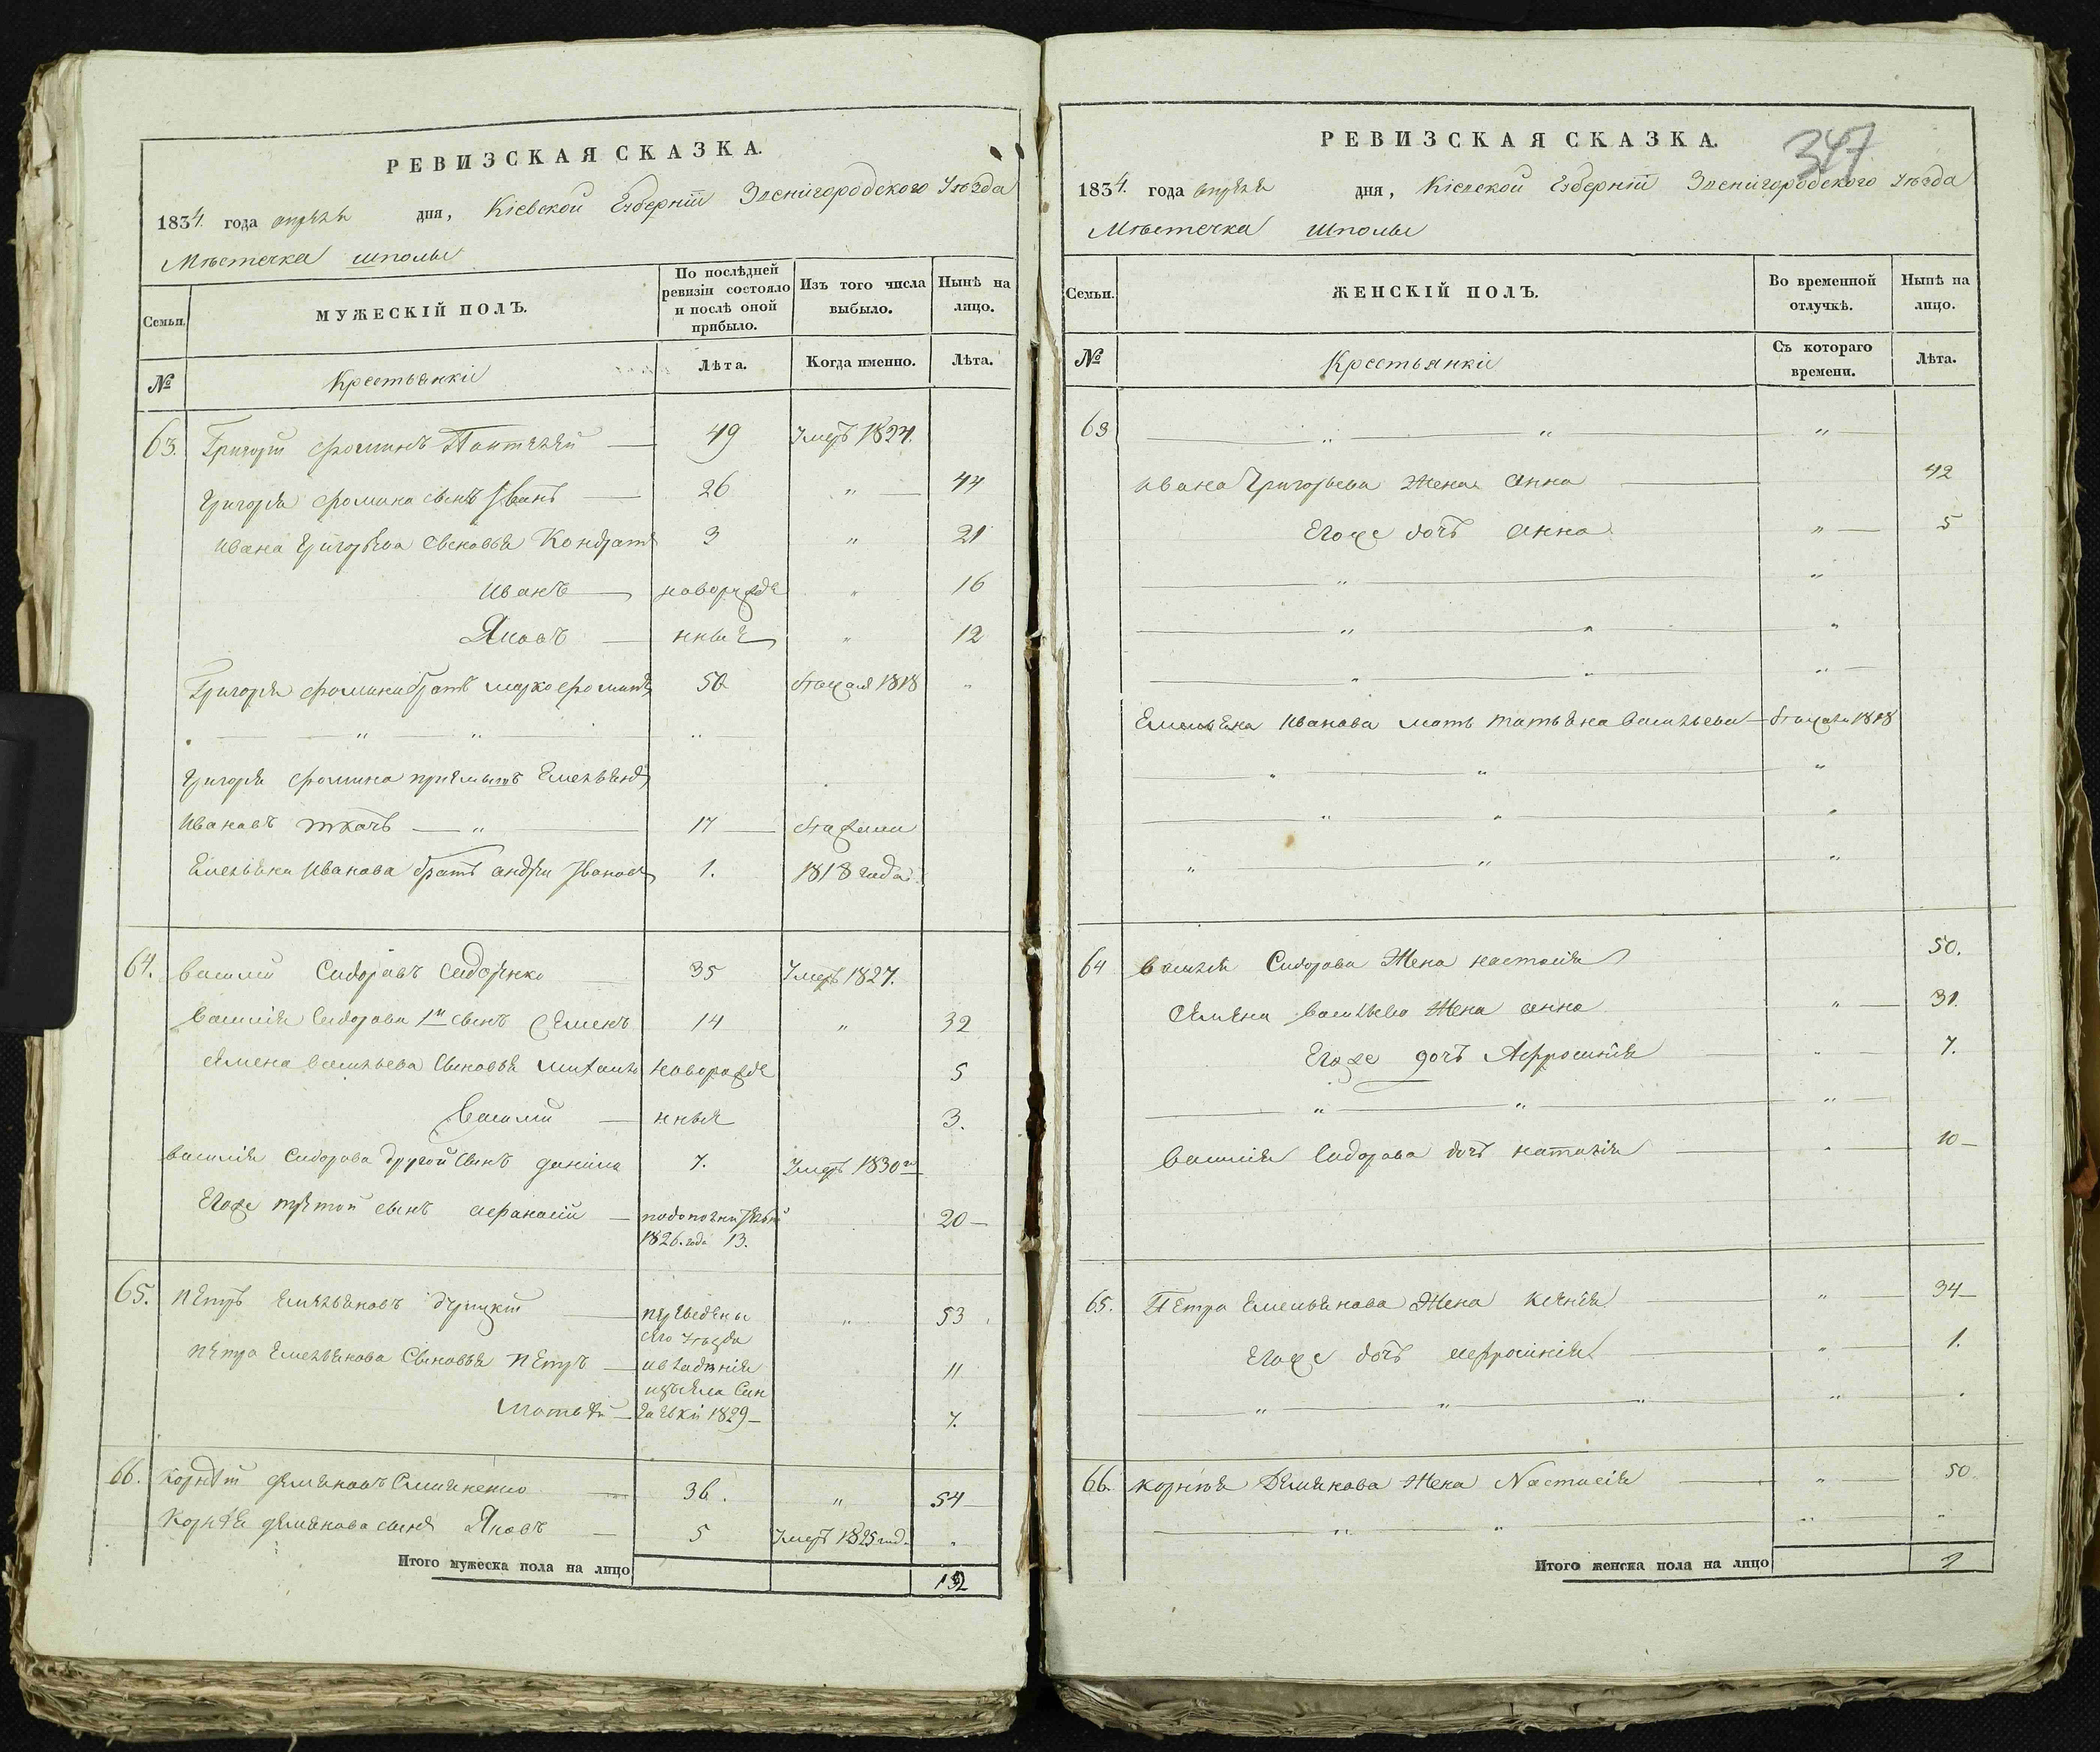 РЕВИЗСКАЯ СКАЗКА.
1834. года апреля дня, Кіевской Губерніи Звенигородского Уѣзда
Мѣстечка Шполы
Семьи.
МУЖЕСКІЙ ПОЛЪ.
По послѣдней ревизіи состояло и послѣ оной прибыло.
Изъ того числа выбыло.
Нынѣ на лицо.
№
Крестьянкіе
Лѣта.
Когда именно.
Лѣта.
63. Григорій Фоминъ 49 Умеръ 1824.
Григорія Фомина сынъ Иванъ 26 " 44
Ивана Григорьева сыновья Кондратъ 3 " 21
Иванъ новорожде " 16
Яковъ нные " 12
Григорія Фомина братъ Марко Фоминъ 50 1818 "
" " "
Григорія Фомина приемышъ Емельянъ
Ивановъ Ткачъ " 17
Емельяна Иванова братъ Андрей Ивановъ 1. 1818 года
64. Василій Сидоровъ Сидоренко 35 Умеръ 1827.
Василія Сидорова 1й сынъ Семенъ 14 " 32
Семена Васильева сыновья Михаилъ новорожде 5
Василий нные 3.
Василія Сидорова другой сынъ Данила 7. Умеръ 1830
Егоже третой сынъ Афанасій 20
1826. года 13.
65. Петръ Емельяновъ переведены " 53
сего Уѣзда
Петра Емельянова сыновья Петръ 11
Матвѣй 1829 7.
66. Корнѣй Демяновъ 36. " 54
Корнѣя Демянова сынъ Яковъ 5 Умеръ 1825 год. "
Итого мужеска пола на лицо
12
РЕВИЗСКАЯ СКАЗКА.
347
1834. года апреля дня, Кіевской Губерніи Звенигородского Уѣзда
Мѣстечка Шполы
Семьи.
ЖЕНСКІЙ ПОЛЪ.
Во временной отлучкѣ.
Нынѣ на лицо.
№
Крестьянкіе
Съ котораго времени.
Лѣта.
63 " " "
Ивана Григорьева Жена Анна 42
Егоже дочъ Анна " 5
" "
" " "
" " "
Емельяна Иванова мать Татьяна Васильева 1818
" " "
" " "
" " "
64 Василія Сидорова Жена Настасія 50.
Семена Васильева Жена Анна " 31.
Егоже дочъ Афросинія " 7.
" " "
Василія Сидорова дочъ Наталія " 10
65. Петра Емельянова Жена Ксенія " 34
Егоже дочъ Афросинія " 1.
" " " "
66. Корнѣя Демянова Жена Настасія " 50
" " " "
Итого женска пола на лицо